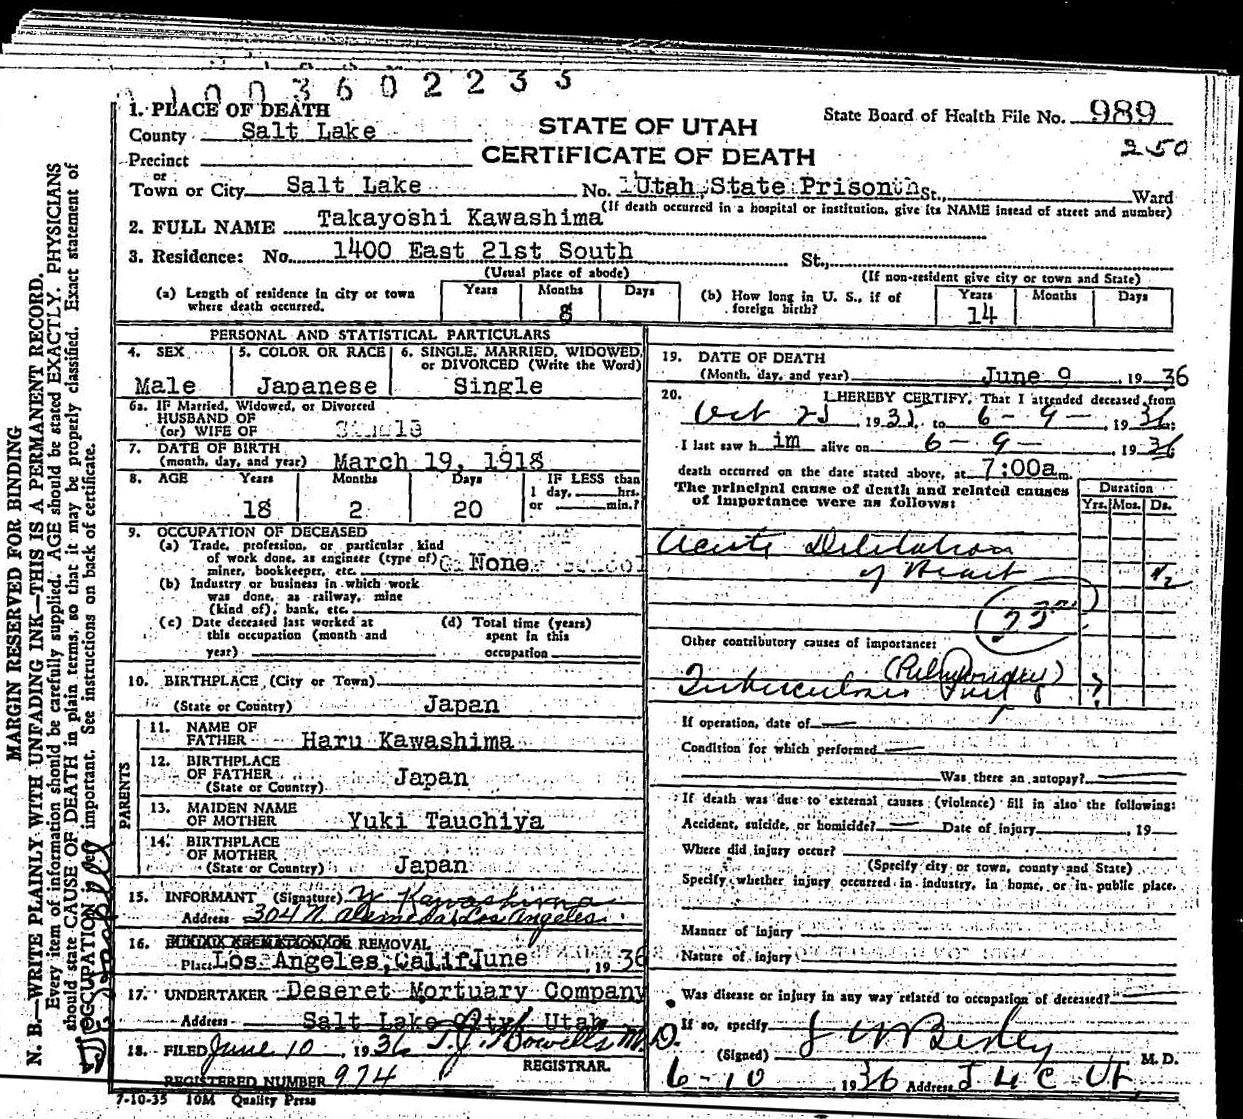 1003602233
1. PLACE OF DEATH
County Salt Lake
STATE OF UTAH
CERTIFICATE OF DEATH
State Board of Health File No. 989
250
Precinct
or
Town or City Salt Lake No. Utah State Prison St., Ward
(If death occurred in a hospital or institution, give its NAME instead of street and number)
2. FULL NAME Takayoshi Kawashima
3. Residence: No. 1400 East 21st South St.,
(Usual place of abode) (If non-resident give city or town and State)
(a) Length of residence in city or town where death occurred. Years Months 8 Days
(b) How long in U. S., if of foreign birth? Years 14 Months Days
PERSONAL AND STATISTICAL PARTICULARS
4. SEX Male
5. COLOR OR RACE Japanese
6. SINGLE, MARRIED, WIDOWED, or DIVORCED (Write the Word) Single
6a. IF Married, Widowed, or Divorced
HUSBAND OF
(or) WIFE OF Single
7. DATE OF BIRTH
(month, day, and year) March 19, 1918
8. AGE Years 18 Months 2 Days 20
IF LESS than
1 day, hrs.
or min.?
9. OCCUPATION OF DECEASED
(a) Trade, profession, or particular kind
of work done, as engineer (type of)
miner, bookkeeper, etc. None
(b) Industry or business in which work
was done, as railway, mine
(kind of), bank, etc.
(c) Date deceased last worked at
this occupation (month and
year)
(d) Total time (years)
spent in this
occupation
10. BIRTHPLACE (City or Town)
(State or Country) Japan
PARENTS
11. NAME OF
FATHER Haru Kawashima
12. BIRTHPLACE
OF FATHER
(State or Country) Japan
13. MAIDEN NAME
OF MOTHER Yuki Tauchiya
14. BIRTHPLACE
OF MOTHER
(State or Country) Japan
15. INFORMANT (Signature) Y Kawashima
Address 304 N Alameda Los Angeles
16. BURIAL CREMATION OR REMOVAL
Place Los Angeles, Calif June 1936
17. UNDERTAKER Deseret Mortuary Company
Address Salt Lake City, Utah
18. FILED June 10, 1936 T. J. Howells M.D.
REGISTRAR.
REGISTERED NUMBER 974
7-10-35 10M Quality Press
19. DATE OF DEATH
(Month, day, and year) June 9, 1936
20. I HEREBY CERTIFY, That I attended deceased from
Oct 25 1935, to 6-9- 1936;
I last saw him alive on 6-9- 1936
death occurred on the date stated above, at 7:00a m.
The principal cause of death and related causes
of importance were as follows:
Duration
Yrs. Mos. Ds.
Acute Dilitation
of Heart 1/2
Other contributory causes of importance:
(Pulmonary)
Tuberculosis ?
If operation, date of
Condition for which performed
Was there an autopsy?
If death was due to external causes (violence) fill in also the following:
Accident, suicide, or homicide? Date of injury , 19
Where did injury occur?
(Specify city or town, county and State)
Specify whether injury occurred in industry, in home, or in public place.
Manner of injury
Nature of injury
Was disease or injury in any way related to occupation of deceased?
If so, specify
(Signed) M. D.
6-10, 1936 Address S L C Ut
MARGIN RESERVED FOR BINDING
N. B.—WRITE PLAINLY WITH UNFADING INK—THIS IS A PERMANENT RECORD.
Every item of information should be carefully supplied. AGE should be stated EXACTLY. PHYSICIANS
should state CAUSE OF DEATH in plain terms, so that it may be properly classified. Exact statement of
OCCUPATION is important. See instructions on back of certificate.